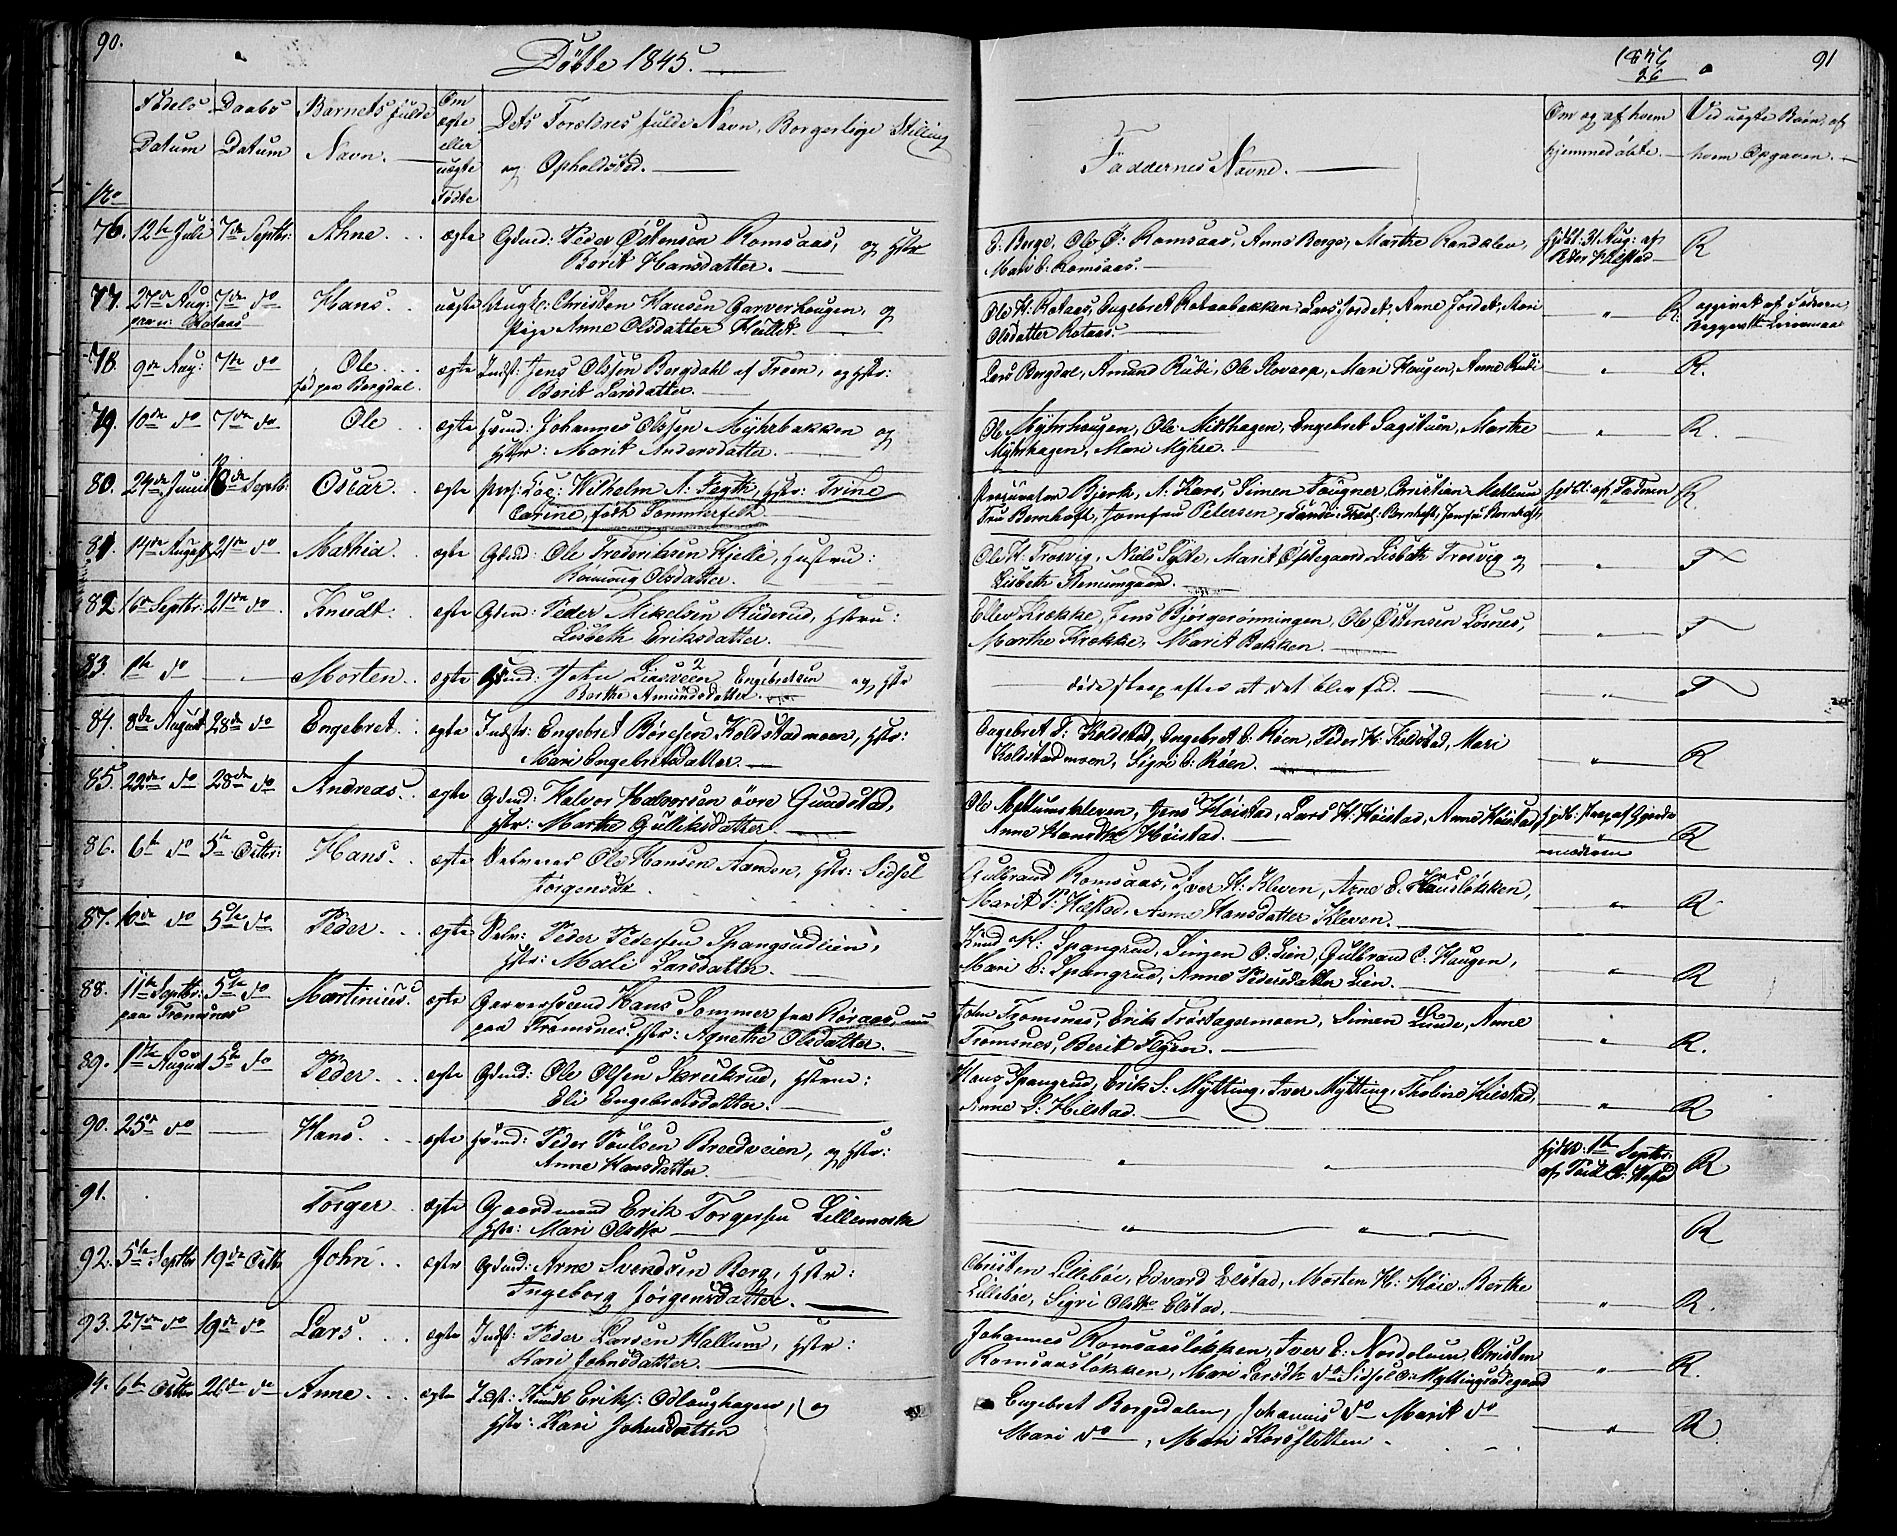 90.
Døbte 1845.
Fødels Datum
Daabs Datum
Barnets fulde Navn.
Om ægte eller uægte Fødte
Dets Forældres fulde Navn, Borgerlige Stilling og Opholdsted.
No
76. 12te Juli 7de Septbr: Ahne. ægte Gdmd: Peder Østensen Romsaas, og Hstr
Berit Hansdatter.
77. 27de Aug: 7de do Hans. uægte Ungk: Christen Hansen Garverhougen, og
Pige Anne Olsdatter
78. 9de Aug: 7de do Ole. ægte Indst: Jens Olssen Bergdahl af Fron, og Hstr:
fød paa Bergdal. Berit Larsdatter.
79. 10de do 7de do Ole ægte Hsmd: Johannes Olssen Myhrbakken og
Hstr: Marit Andersdatter.
80. 24de Juni 18de Septb: Oscar. ægte Wilhelm A: Fegth, Hstr: Trine
Carine, født Sommerfelt
81. 14de August 21de do Mathia. ægte Gdmd: Ole Frederiksen Hjelle, Hustru:
Rønnoug Olsdatter.
82. 16de Septbr: 21de do Knudt. ægte Gdmd: Peder Mikelsen Ruderud, Hstru:
Lisbeth Eriksdatter.
83. 1te do Morten. ægte John Engebretsen og Hstr
Berthe Amundsdatter.
84. 8de August 28de do Engebret. ægte Indstr: Engebret Børesen Kolstadmoen, Hstr:
Mari Engebretsdatter.
85. 22de do 28de do Andreas. ægte Gdmd: Halvor Halvorsen øvre Gundstad,
Hstr: Marthe Gulliksdatter.
86. 6te do 5te Octbr: Hans. ægte Ole Hansen Hstr: Sidsel
Jørgensdtr.
87. 10de do 5te do Peder. ægte Selv: Peder Pedersen
Hstr: Mali Larsdatter.
88. 11te Septbr: 5te do Martinius. ægte Garversvend Hans Sommer fra Røraas, nu
paa Tromsnes paa Tromsnes, Hstr: Agnethe Olsdatter.
89. 1te August 5te do Peder. ægte Gdmd: Ole Olsen Skrukrud, Hstru:
Eli Engebretsdatter.
90. 25de do Hans. ægte Hsmd: Peder Poulsen Bredveien, og Hstr:
Anne Hansdatter.
91. Torger. ægte Gaardmand Erik Torgersen Lillemoshe
Hstr: Mari Olsdtr
92. 5te Septbr 19de Octbr John. ægte Gdmd: Arne Svendsen Berg, Hstr:
Ingeborg Jørgensdatter.
93. 27de do 19de do Lars. ægte Indst: Peder Larsen Hallum, Hstr:
Kari Johnsdatter.
94. 6te Octbr 26de do Anne. ægte Indst: Knudt Eriks: Odloughagen, og
Hstr: Kari Johnsdatter
91
Faddernes Navne.
Om og af hvem hjemmedøbte.
Ved uægte Børn, af hvem Opgaven.
Berge, Ole Ø: Romsaas, Anne Berge, Marthe
Mari E: Romsaas. hjdbt: 31 Aug: af R
Ole H: Rotaas, Engebret Rotaabakken, Lars Jordet, Anne Jordet, Mari R. opgivet af Faderen
Olsdatter Rotaas.
Lars Bergdal, Amund Rudi, Ole Mari Hougen, Anne Rudi R.
Ole Myhrhaugen, Ole Midthagen, Engebret Sagstuen, Marthe R.
Myhrhagen, Mari Myhre.
Procurator Bjerk, A: Simen Fougner, Christian hjdbt: af Faderen R.
Fru Bernhoft, Jomfru Petersen, Bernhoft, Jomfru Bernhoft
Ole H: Trosvig, Niels Sylte, Marit Østegaard, Lisbeth Trosvig og F
Lisbeth Stenumgaard.
Ellev Krekke, Jens Bjørgerønningen, Ole Østensen Losnes, F
Marthe Krekke, Marit Bakken.
døde strax efter at det blev fød. F
Engebret Kolstad, Engebret E: Roen, Peder H: Kolstad, Mari R
Kolstadmoen, Sigri E: Roen.
Ole Mellumskleven, Jens Høistad, Lars H: Høistad, Anne Høistad, hjdb: strax af Gjorde
Anne Hansdtr Høistad. moderen R
Gulbrand Romsaas, Iver H: Kleven, Arne E. R
Marit P: Hilstad, Anne Hansdatter Kleven.
Knud Spangrud, O: Lien, Gulbrand O: Haugen, R
Mari E: Spangrud, Anne Pedersdatter Lien.
John Tromsnes, Erik Simen Lunde, Anne R.
Tromsnes, Berit Flyen.
Hans Spangrud, Erik S: Mytting, Iver Mytting, Tholine Hilstad, R
Anne S: Hilstad.
hjdbt: 1te Septbr: R
R
Christen Lillebøe, Edvard Elstad, Morten H: Høie, Berthe R.
Lillebøe, Sigri Olsdtr Elstad.
Johannes Romsaasløkken, Iver E: Nordslum, Christen R.
Romsaasløkken, Mari Larsdtr do, Sidsel Myttingsødegaard
Engebret Bergdalen, Johannis do, Marit do R
Mari do, Mari Korsfletten.